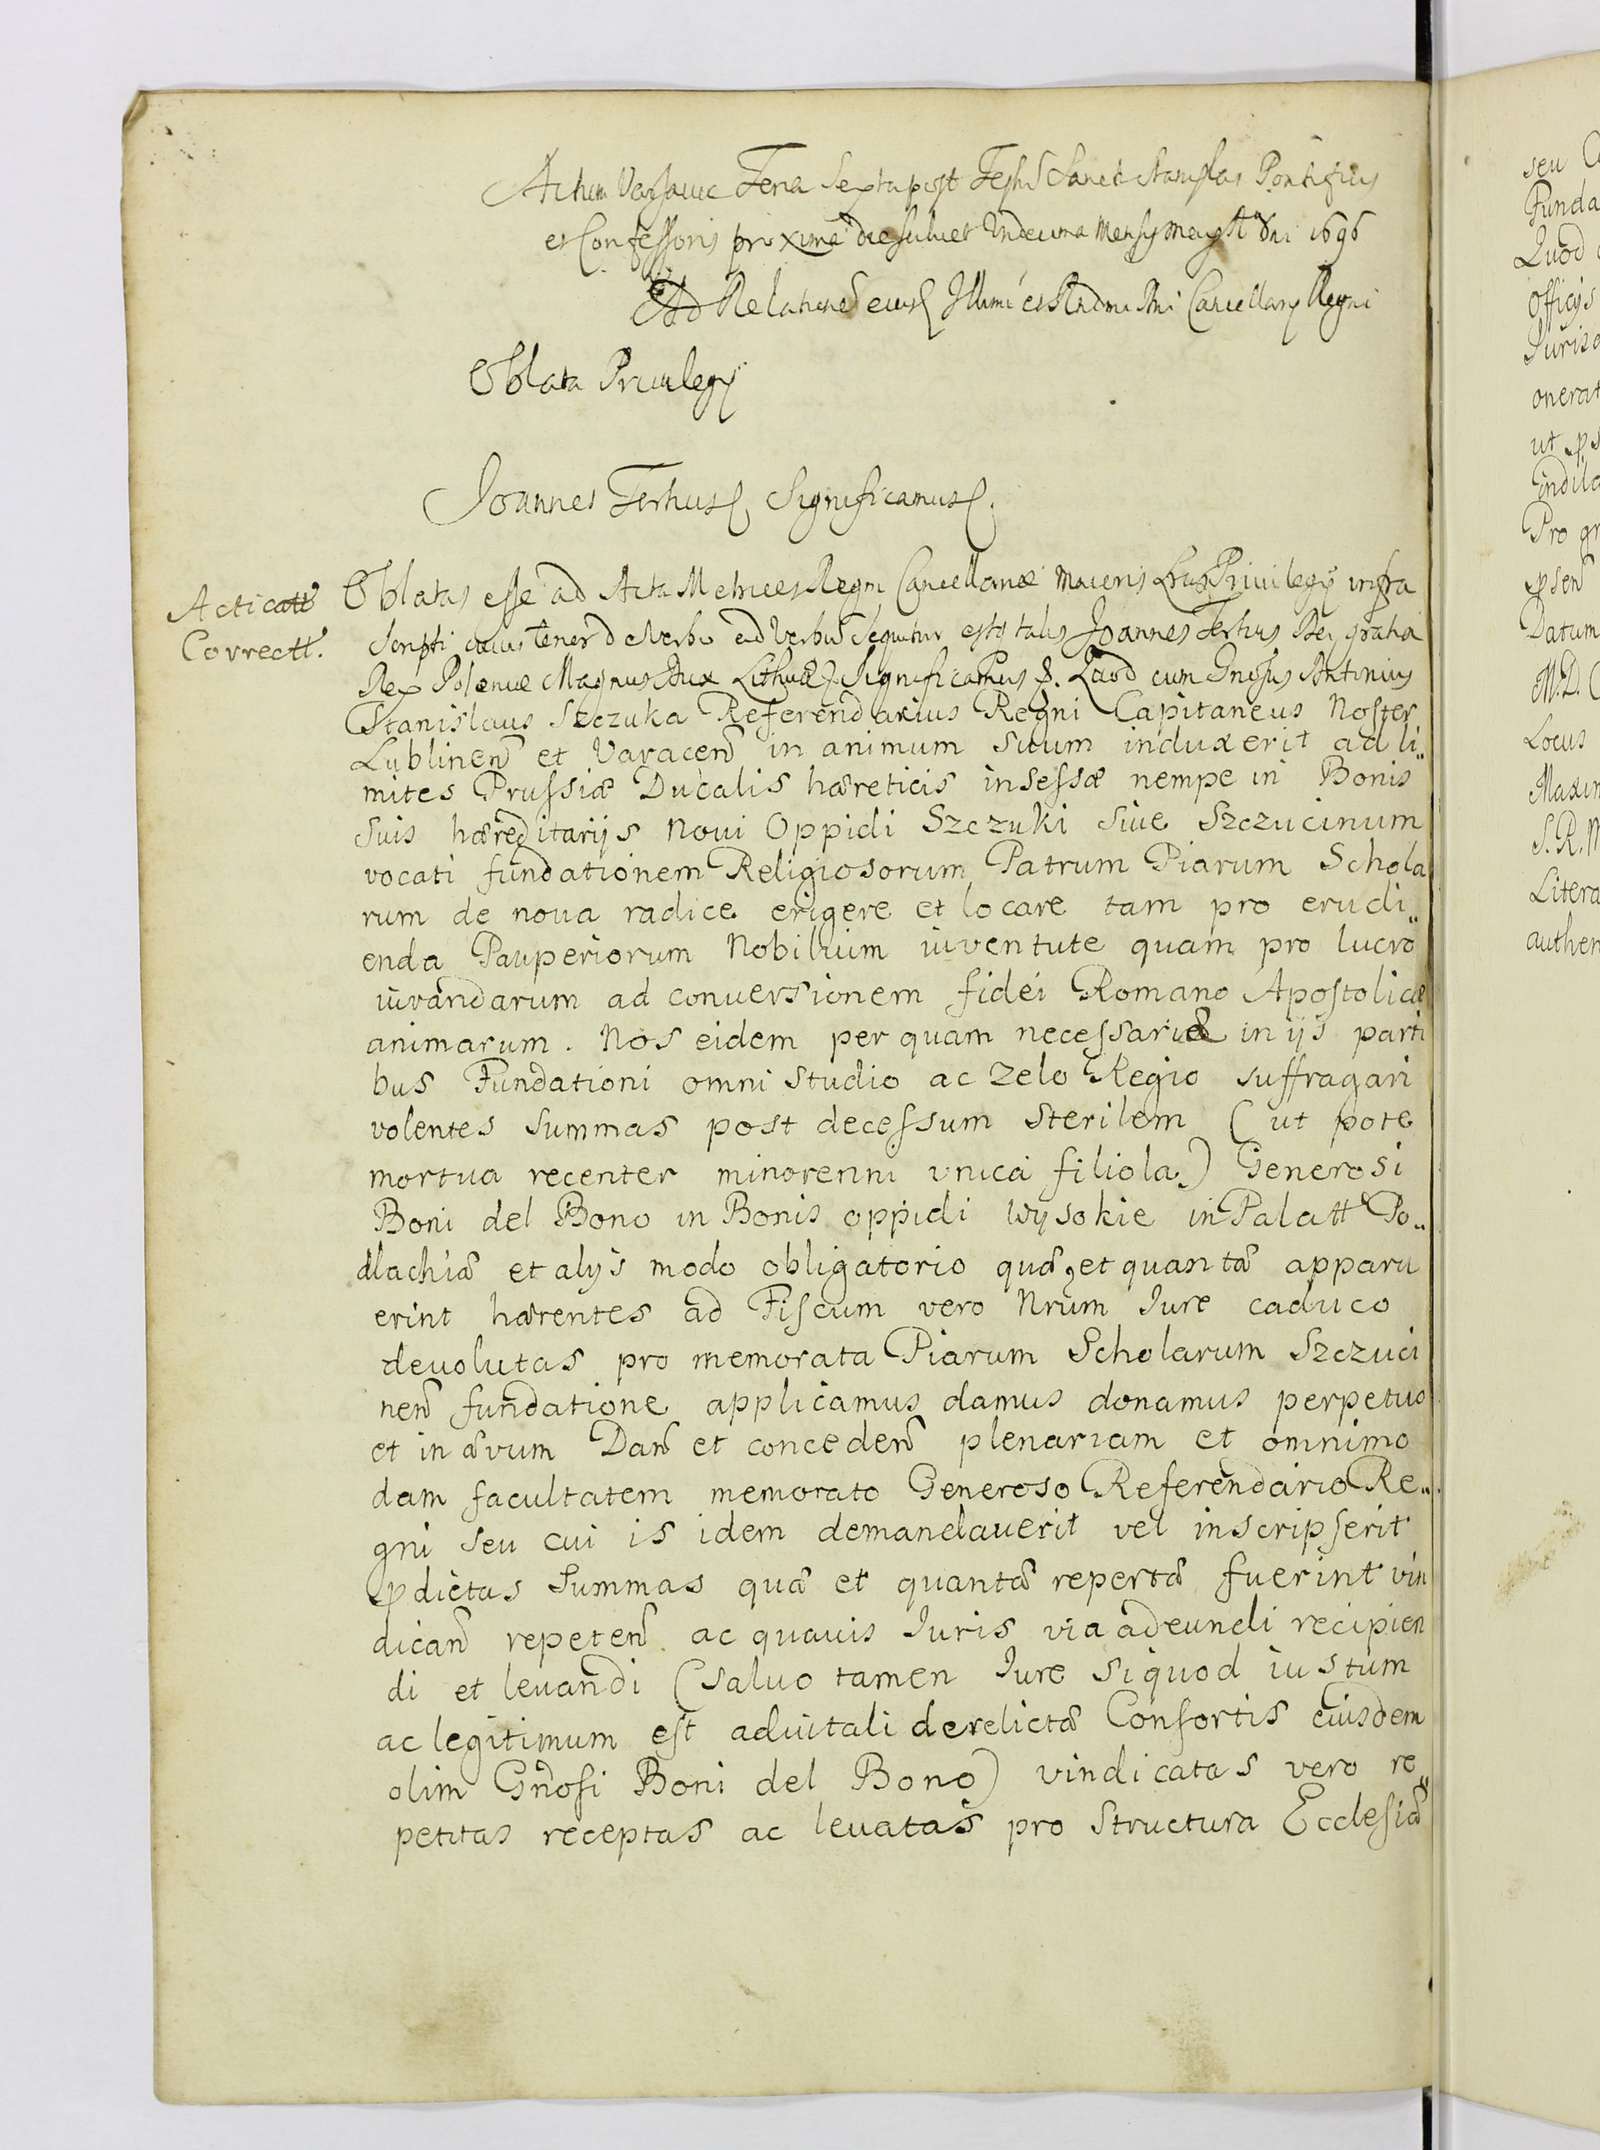 Actum Varsaviae Feria Sexta post Festũ Sancti Stanislai Pontificis
et Confessoris proxima die scilicet Undecima Mensis Maij A Dni 1696
Ad Relationẽ eius Illumi et Rndmi Dni Cancellarij Regni
Oblata Privilegij
Joannes Tertius Significamus
Acticatt
Correctt.
Oblatas esse ad Acta Metrices Regni Cancellariæ Maioris Lras Privilegij infra
scripti cuius tenor de Verbo ad Verbũ sequitur estq talis Joannes Tertius Dei gratia
Rex Poloniæ Magnus Dux Lithuæ Significamus &. Quod cum Gnosus Antonius
Stanislaus Szczuka Referendarius Regni Capitaneus Noster
Lublinen et Varacen in animum suum induxerit ad li„
mites Prussiæ Ducalis hæreticis insessæ nempe in Bonis
suis hæreditarijs Novi Oppidi Szczuki sive Szczucinum
vocati fundationem Religiosorum Patrum Piarum Schola
rum de nova radice erigere et locare tam pro erudi„
enda Pauperiorum Nobilium iuventute quam pro lucro
iuvandarum ad conversionem fidei Romano Apostolicæ
animarum. Nos eidem per quam necessariæ in ijs parti
bus Fundationi omni studio ac zelo Regio suffragari
volentes summas post decessum sterilem (ut pote
mortua recenter minorenni unica filiola) Generosi
Boni del Bono in Bonis oppidi Wysokie in Palatt Po„
dlachiæ et alijs modo obligatorio quæ et quantæ apparu
erint hærentes ad Fiscum vero Nrum Jure caduco
devolutas pro memorata Piarum Scholarum Szczuci
nen fundatione applicamus damus donamus perpetuo
et in ævum Dan et conceden plenariam et omnimo
dam facultatem memorato Generoso Referendario Re„
gni seu cui is idem demandaverit vel inscripserit
pdictas summas quæ et quantæ repertæ fuerint vin
dican repeten ac quavis Juris via adeundi recipien
di et levandi (salvo tamen Jure siquod iustum
ac legitimum est advitali derelictæ Consortis eiusdem
olim Gnosi Boni del Bono) vindicatas vero re„
petitas receptas ac levatas pro structura Ecclesiæ
seu
Funda
Quod
officijs
onerat
ut
Pro
Datum
M.D.
Locus
S.R.M
Litera
authen